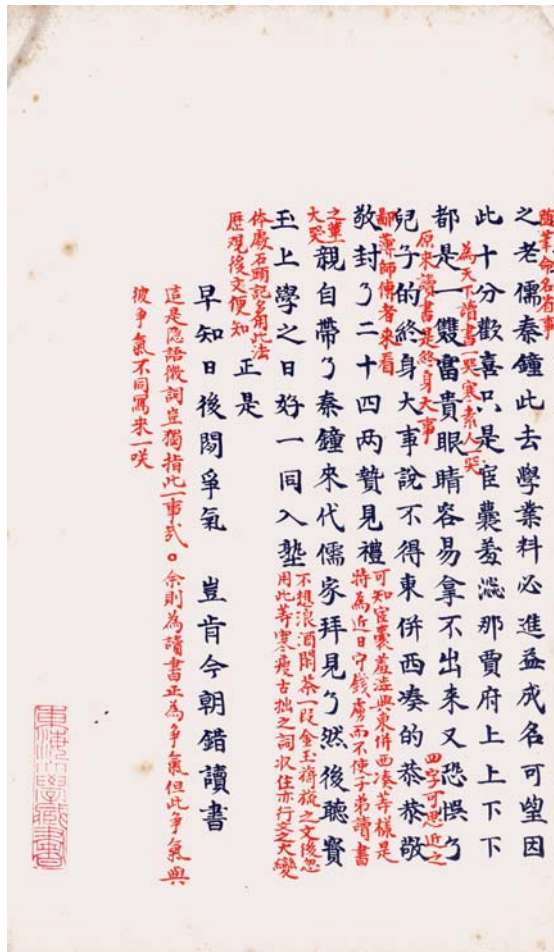 隨筆命名省事
之老儒秦鐘此去學業料必進益成名可望因
此十分歡喜只是宦囊羞澁那賈府上上下下
為天下讀書一哭寒素人一哭
都是一雙富貴眼睛容易拿不出來又恐悞了
原來讀書是終身大事
兒子的終身大事說不得東併西湊的恭恭敬
四字可思近之
鄙薄師傅者來看
敬封了二十四两贄見禮
可知宦囊羞澁與東併西湊等樣是
特為近日守钱虏而不使子弟讀書
之輩
大哭
親自帶了秦鐘來代儒家拜見了然後聽寳
玉上學之日好一同入塾
不想浪酒閑茶一段金玉旖旎之文後忽
用此等寒瘦古拙之詞収住亦行文之大變
体處石頭記多用此法
歷观後文便知
正是
早知日後閑爭氣　豈肯今朝錯讀書
這是隐語微詞豈獨指此一事哉。余則為讀書正為爭氣但此爭氣與
彼爭氣不同寫來一咲
東海大學藏書